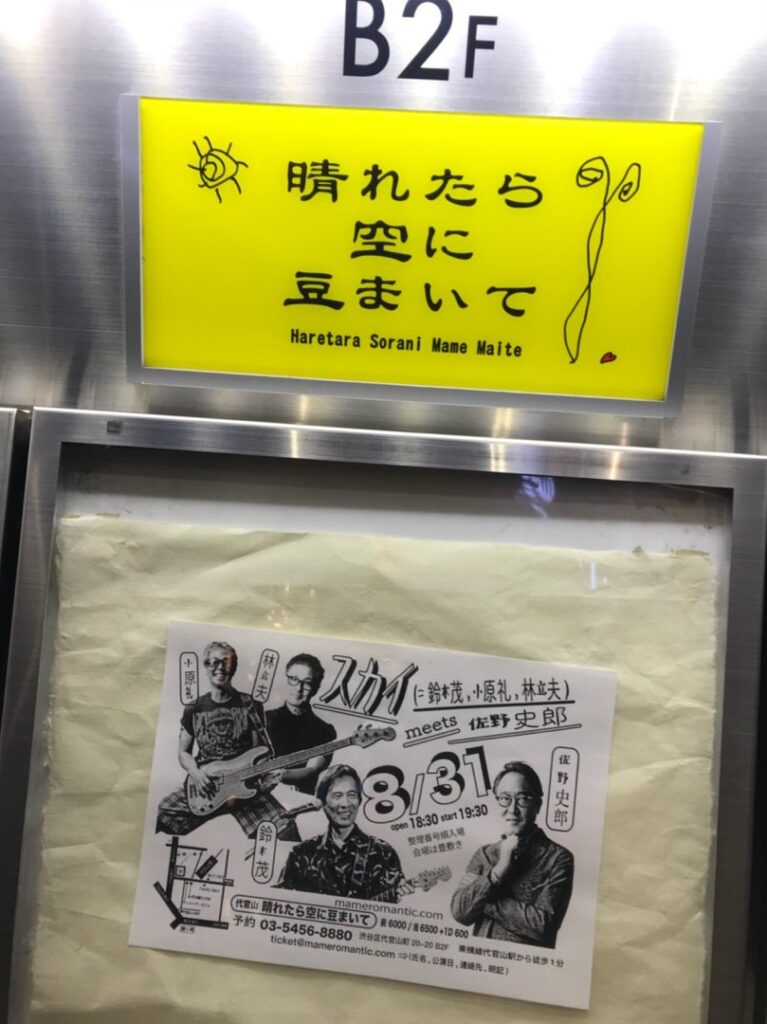 B2F
晴れたら
空に
豆まいて
Haretara Sorani Mame Maite
小原礼
林立夫
スカイ(=鈴木茂,小原礼,林立夫)
meets 佐野史郎
8/31
open 18:30 start 19:30
整理番号順入場
会場は畳敷き
佐野史郎
鈴木茂
mameromantic.com
代官山 晴れたら空に豆まいて 前6000/当6500+1D600
予約 03-5456-8880 渋谷区代官山町20-20 B2F 東横線代官山駅から徒歩1分
ticket@mameromantic.com ⇨(氏名,公演日,連絡先,明記)